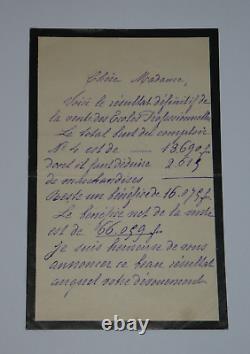 Chère Madame,
Voici le résultat définitif de
la vente des Ecoles Professionnelles
Le total brut du comptoir
N° 4 est de
dont il faut déduire 2.615
de marchandises
Reste un bénéfice de 16.075 f.
Le bénéfice net de la vente
est de 66.059 f.
Je suis heureuse de vous
annoncer ce beau résultat
auquel votre dévouement